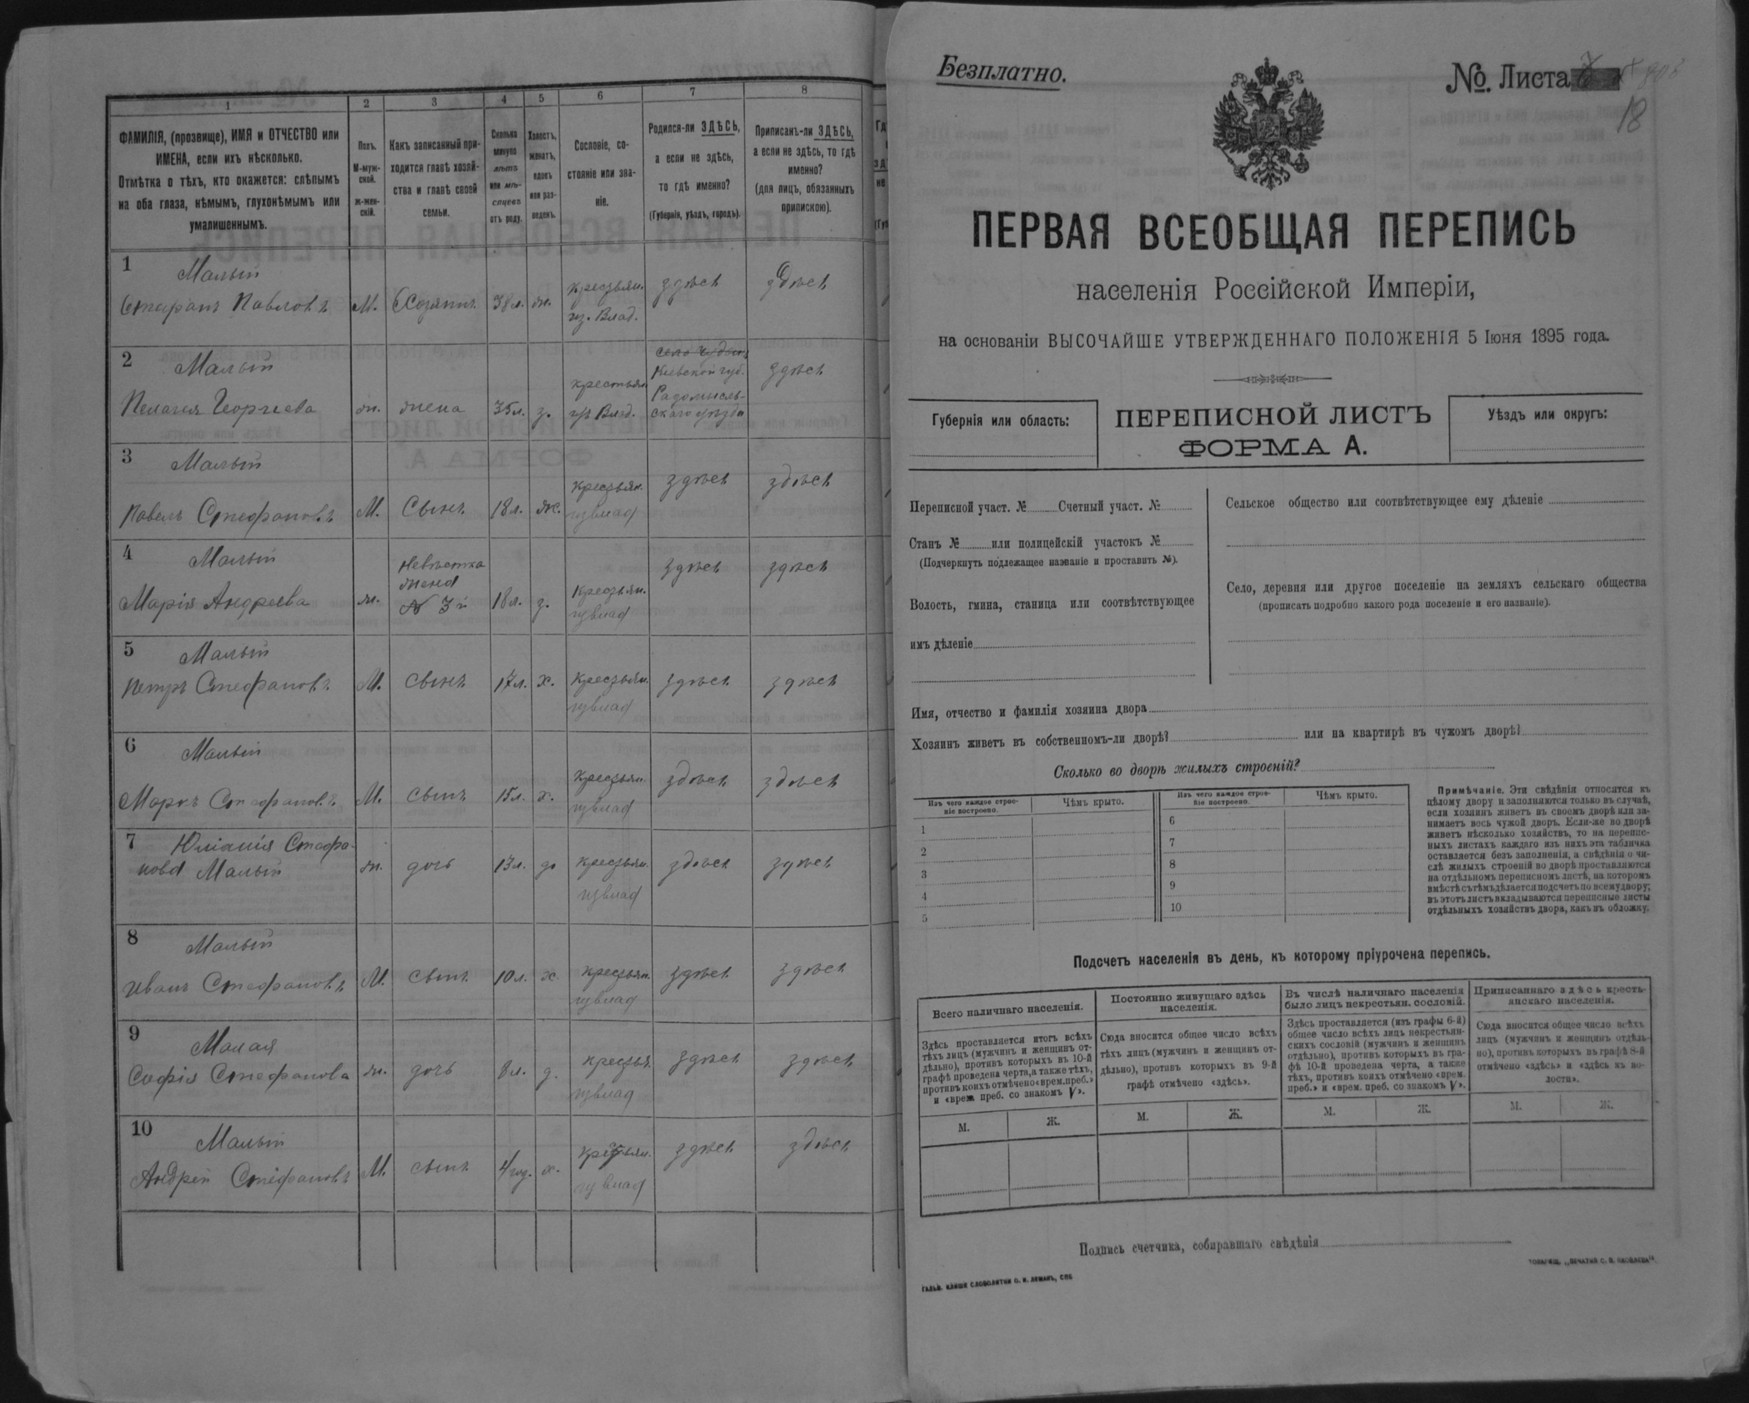 1 2 3 4 5 6 7 8
ФАМИЛІЯ, (прозвище), ИМЯ и ОТЧЕСТВО или
ИМЕНА, если ихъ нѣсколько.
Отмѣтка о тѣхъ, кто окажется: слѣпымъ
на оба глаза, нѣмымъ, глухонѣмымъ или
умалишеннымъ.
Полъ.
М-муж-
ской.
ж-жен-
скій.
Какъ записанный при-
ходится главѣ хозяй-
ства и главѣ своей
семьи.
Сколько
минуло
лѣтъ
или мѣ-
сяцевъ
отъ роду.
Холостъ,
женатъ,
вдовъ
или раз-
веденъ.
Сословіе, со-
стояніе или зва-
ніе.
Родился-ли ЗДѢСЬ,
а если не здѣсь,
то гдѣ именно?
(Губернія, уѣздъ, городъ).
Приписанъ-ли ЗДѢСЬ,
а если не здѣсь, то гдѣ
именно?
(для лицъ, обязанныхъ
припискою).
1 Малый
Стефанъ Павловъ М. Хозяинъ 38 л. ж. крестьян. из. Влад. здѣсь здѣсь
2 Малый
Пелагея Георгіева ж. жена 35 л. з. крестьян. из Влад.
Кіевской губ.
Радомысль-
скаго уѣзда
здѣсь
3 Малый
Павелъ Стефановъ М. сынъ 18 л. ж. крестьян. изъ влад здѣсь здѣсь
4 Малый
Марія Андреева ж.
невѣстка
жена
№ 3й
18 л. з. крестьян. изъ влад здѣсь здѣсь
5 Малый
Петръ Стефановъ М. сынъ 17 л. х. крестьян. изъ влад здѣсь здѣсь
6 Малый
Маркъ Стефановъ М. сынъ 15 л. х. крестьян. изъ влад здѣсь здѣсь
7 Юліанія Стефа-
нова Малый ж. дочь 13 л. д. крестьян. изъ влад здѣсь здѣсь
8 Малый
Иванъ Стефановъ М. сынъ 10 л. х крестьян. изъ влад здѣсь здѣсь
9 Малая
Софія Стефанова ж. дочь 8 л. д. крестья изъ влад здѣсь здѣсь
10 Малый
Андрей Стефановъ М. сынъ 4 год. х. крестьян. изъ влад здѣсь здѣсь
Безплатно.
№. Листа
18
ПЕРВАЯ ВСЕОБЩАЯ ПЕРЕПИСЬ
населенія Россійской Имперіи,
на основаніи ВЫСОЧАЙШЕ УТВЕРЖДЕННАГО ПОЛОЖЕНІЯ 5 Іюня 1895 года.
Губернія или область:
ПЕРЕПИСНОЙ ЛИСТЪ
ФОРМА А.
Уѣздъ или округъ:
Переписной участ. № Счетный участ. №
Станъ № или полицейскій участокъ №
(Подчеркнуть подлежащее названіе и проставить №).
Волость, гмина, станица или соотвѣтствующее
имъ дѣленіе
Сельское общество или соотвѣтствующее ему дѣленіе
Село, деревня или другое поселеніе на земляхъ сельскаго общества
(прописать подробно какого рода поселеніе и его названіе).
Имя, отчество и фамилія хозяина двора
Хозяинъ живетъ въ собственномъ-ли дворѣ? или на квартирѣ въ чужомъ дворѣ?
Сколько во дворѣ жилыхъ строеній?
Изъ чего каждое строе-
ніе построено.
Чѣмъ крыто.
Изъ чего каждое строе-
ніе построено.
Чѣмъ крыто.
1 6
2 7
3 8
4 9
5 10
Примѣчаніе. Эти свѣдѣнія относятся къ
цѣлому двору и заполняются только въ случаѣ,
если хозяинъ живетъ въ своемъ дворѣ или за-
нимаетъ весь чужой дворъ. Если-же во дворѣ
живетъ нѣсколько хозяйствъ, то на перепис-
ныхъ листахъ каждаго изъ нихъ эта табличка
оставляется безъ заполненія, а свѣдѣнія о чи-
слѣ жилыхъ строеній во дворѣ проставляются
на отдѣльномъ переписномъ листѣ, на которомъ
вмѣстѣ съ тѣмъ дѣлается подсчетъ по всему двору;
въ этотъ листъ вкладываются переписные листы
отдѣльныхъ хозяйствъ двора, какъ въ обложку.
Подсчетъ населенія въ день, къ которому пріурочена перепись.
Всего наличнаго населенія.
Здѣсь проставляется итогъ всѣхъ
тѣхъ лицъ (мужчинъ и женщинъ от-
дѣльно), противъ которыхъ въ 10-й
графѣ проведена черта, а также тѣхъ,
противъ коихъ отмѣчено «врем. преб.»
и «врем. преб. со знакомъ V».
Постоянно живущаго здѣсь
населенія.
Сюда вносится общее число всѣхъ
тѣхъ лицъ (мужчинъ и женщинъ от-
дѣльно), противъ которыхъ въ 9-й
графѣ отмѣчено «здѣсь».
Въ числѣ наличнаго населенія
было лицъ некрестьян. сословій.
Здѣсь проставляется (изъ графы 6-й)
общее число всѣхъ лицъ некрестьян-
скихъ сословій (мужчинъ и женщинъ
отдѣльно), противъ которыхъ въ гра-
фѣ 10-й проведена черта, а также
тѣхъ, противъ коихъ отмѣчено «врем.
преб.» и «врем. преб. со знакомъ V».
Приписаннаго здѣсь кресть-
янскаго населенія.
Сюда вносится общее число всѣхъ
лицъ (мужчинъ и женщинъ отдѣль-
но), противъ которыхъ въ графѣ 8-й
отмѣчено «здѣсь» и «здѣсь въ во-
лости».
М. Ж. М. Ж. М. Ж. М. Ж.
Подпись счетчика, собиравшаго свѣдѣнія
ГАЛЬВ. КЛИШЕ СЛОВОЛИТНИ О. И. ЛЕМАНЪ, СПБ.